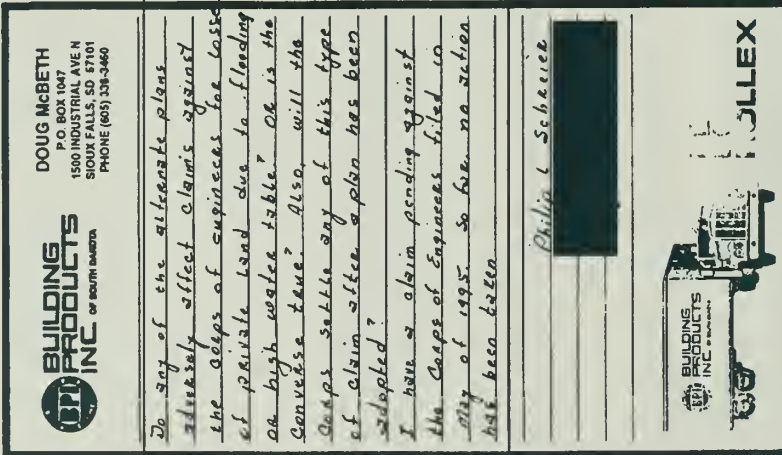 BPI
BUILDING
PRODUCTS
INC. OF SOUTH DAKOTA
DOUG McBETH
P.O. BOX 1047
1500 INDUSTRIAL AVE N
SIOUX FALLS, SD 57101
PHONE (605) 336-3460
Do any of the alternate plans
adversely affect claims against
the corps of engineers for losse
of private land due to flooding
or high water table? OR is the
converse true? Also, will the
Corps settle any of this type
of claim after a plan has been
adopted?
I have a claim pending against
the Corps of Engineers filed in
May of 1995. So far, no action
has been taken
Philip L Schreier
BPI
BUILDING
PRODUCTS
INC.
LLEX